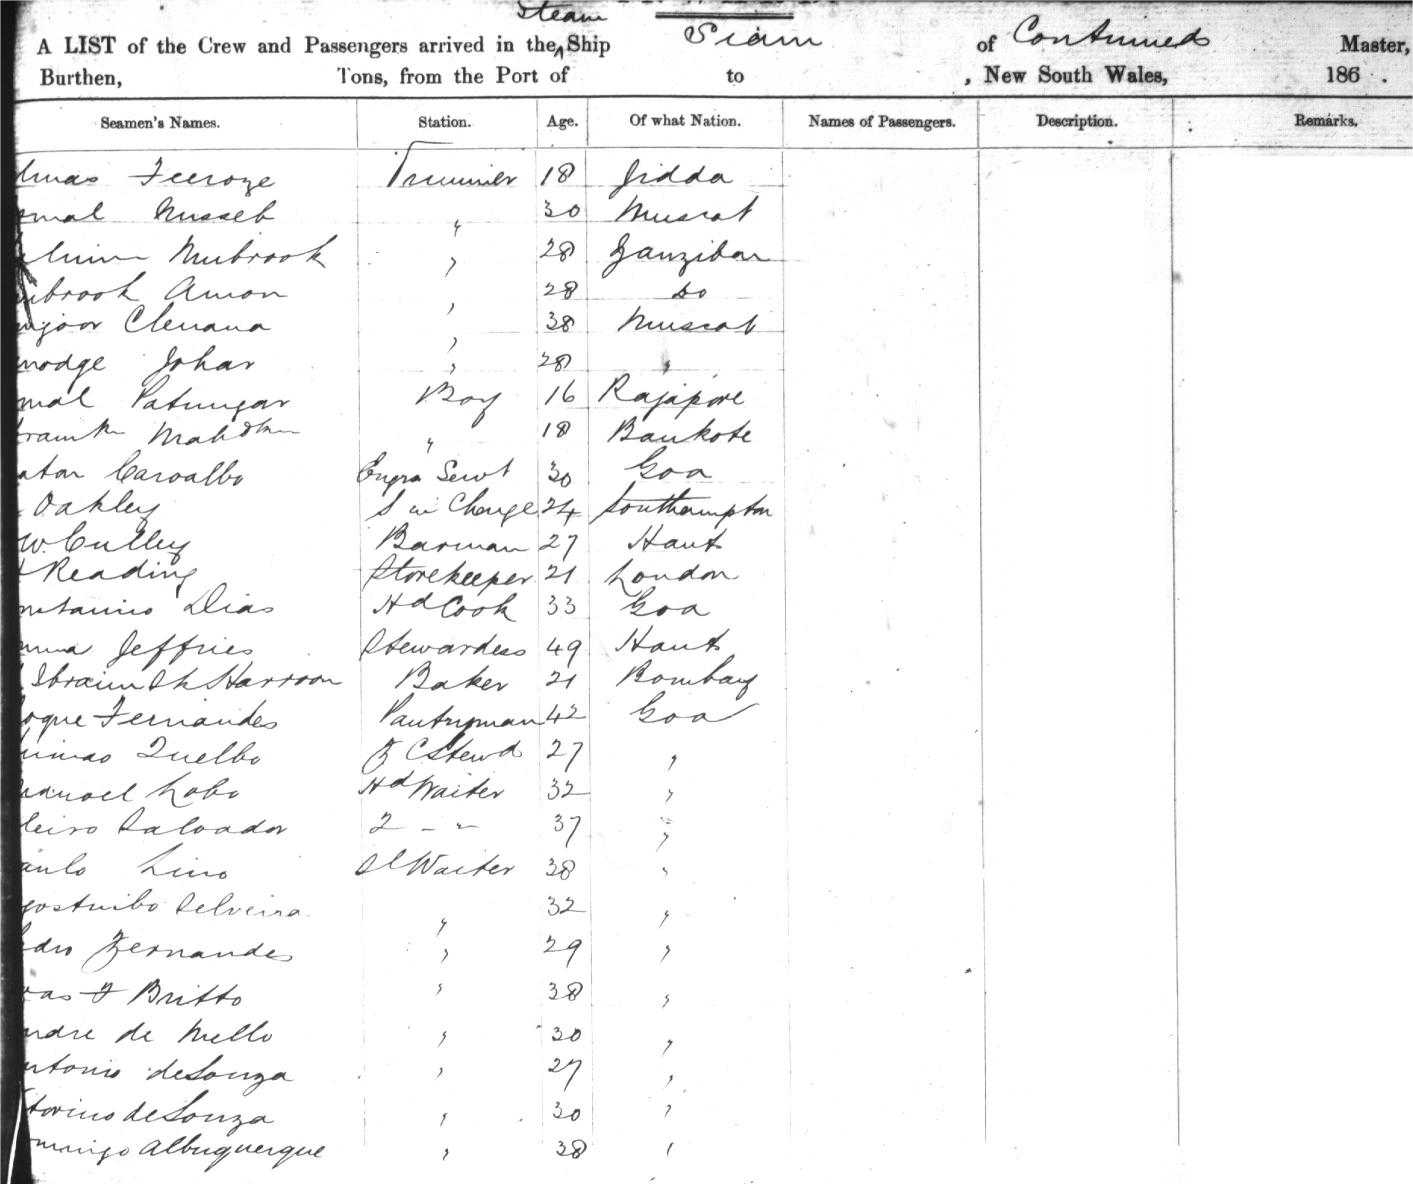 Steam
A LIST of the Crew and Passengers arrived in the ^ Ship Siam of Continued Master,
Burthen, Tons, from the Port of to , New South Wales, 186 .
Seamen's Names. Station. Age. Of what Nation. Names of Passengers. Description. Remarks.
Feeroze Trimmer 18 Jidda
Nusseb " 30 Muscat
Mubrook " 28 Zanzibar
mbrook Amon " 28 Do
Clenana " 38 Muscat
modge Johar " 28 "
mal Patungar Boy 16 Rajapore
" 18 Bankote
Carvalho Engrs Servt 30 Goa
Oakley S in Charge 24 Southampton
W. Culley Barman 27 Hants
Reading Storekeeper 21 London
nstancio Dias Hd Cook 33 Goa
mma Jeffries Stewardess 49 Hants
Ibraim Sk Harroon Baker 21 Bombay
oque Fernandes Pantryman 42 Goa
Quelho 27 "
anoel Lobo Hd Waiter 32 "
Salvador 2 - " 37 "
aulo Lino Sl Waiter 38 "
Selveira " 32 "
edro Fernandes " 29 "
F Britto " 38 "
ndre de Mello " 30 "
ntonio de Souza " 27 "
torino de Souza " 30 "
omingo Albuquerque " 38 "